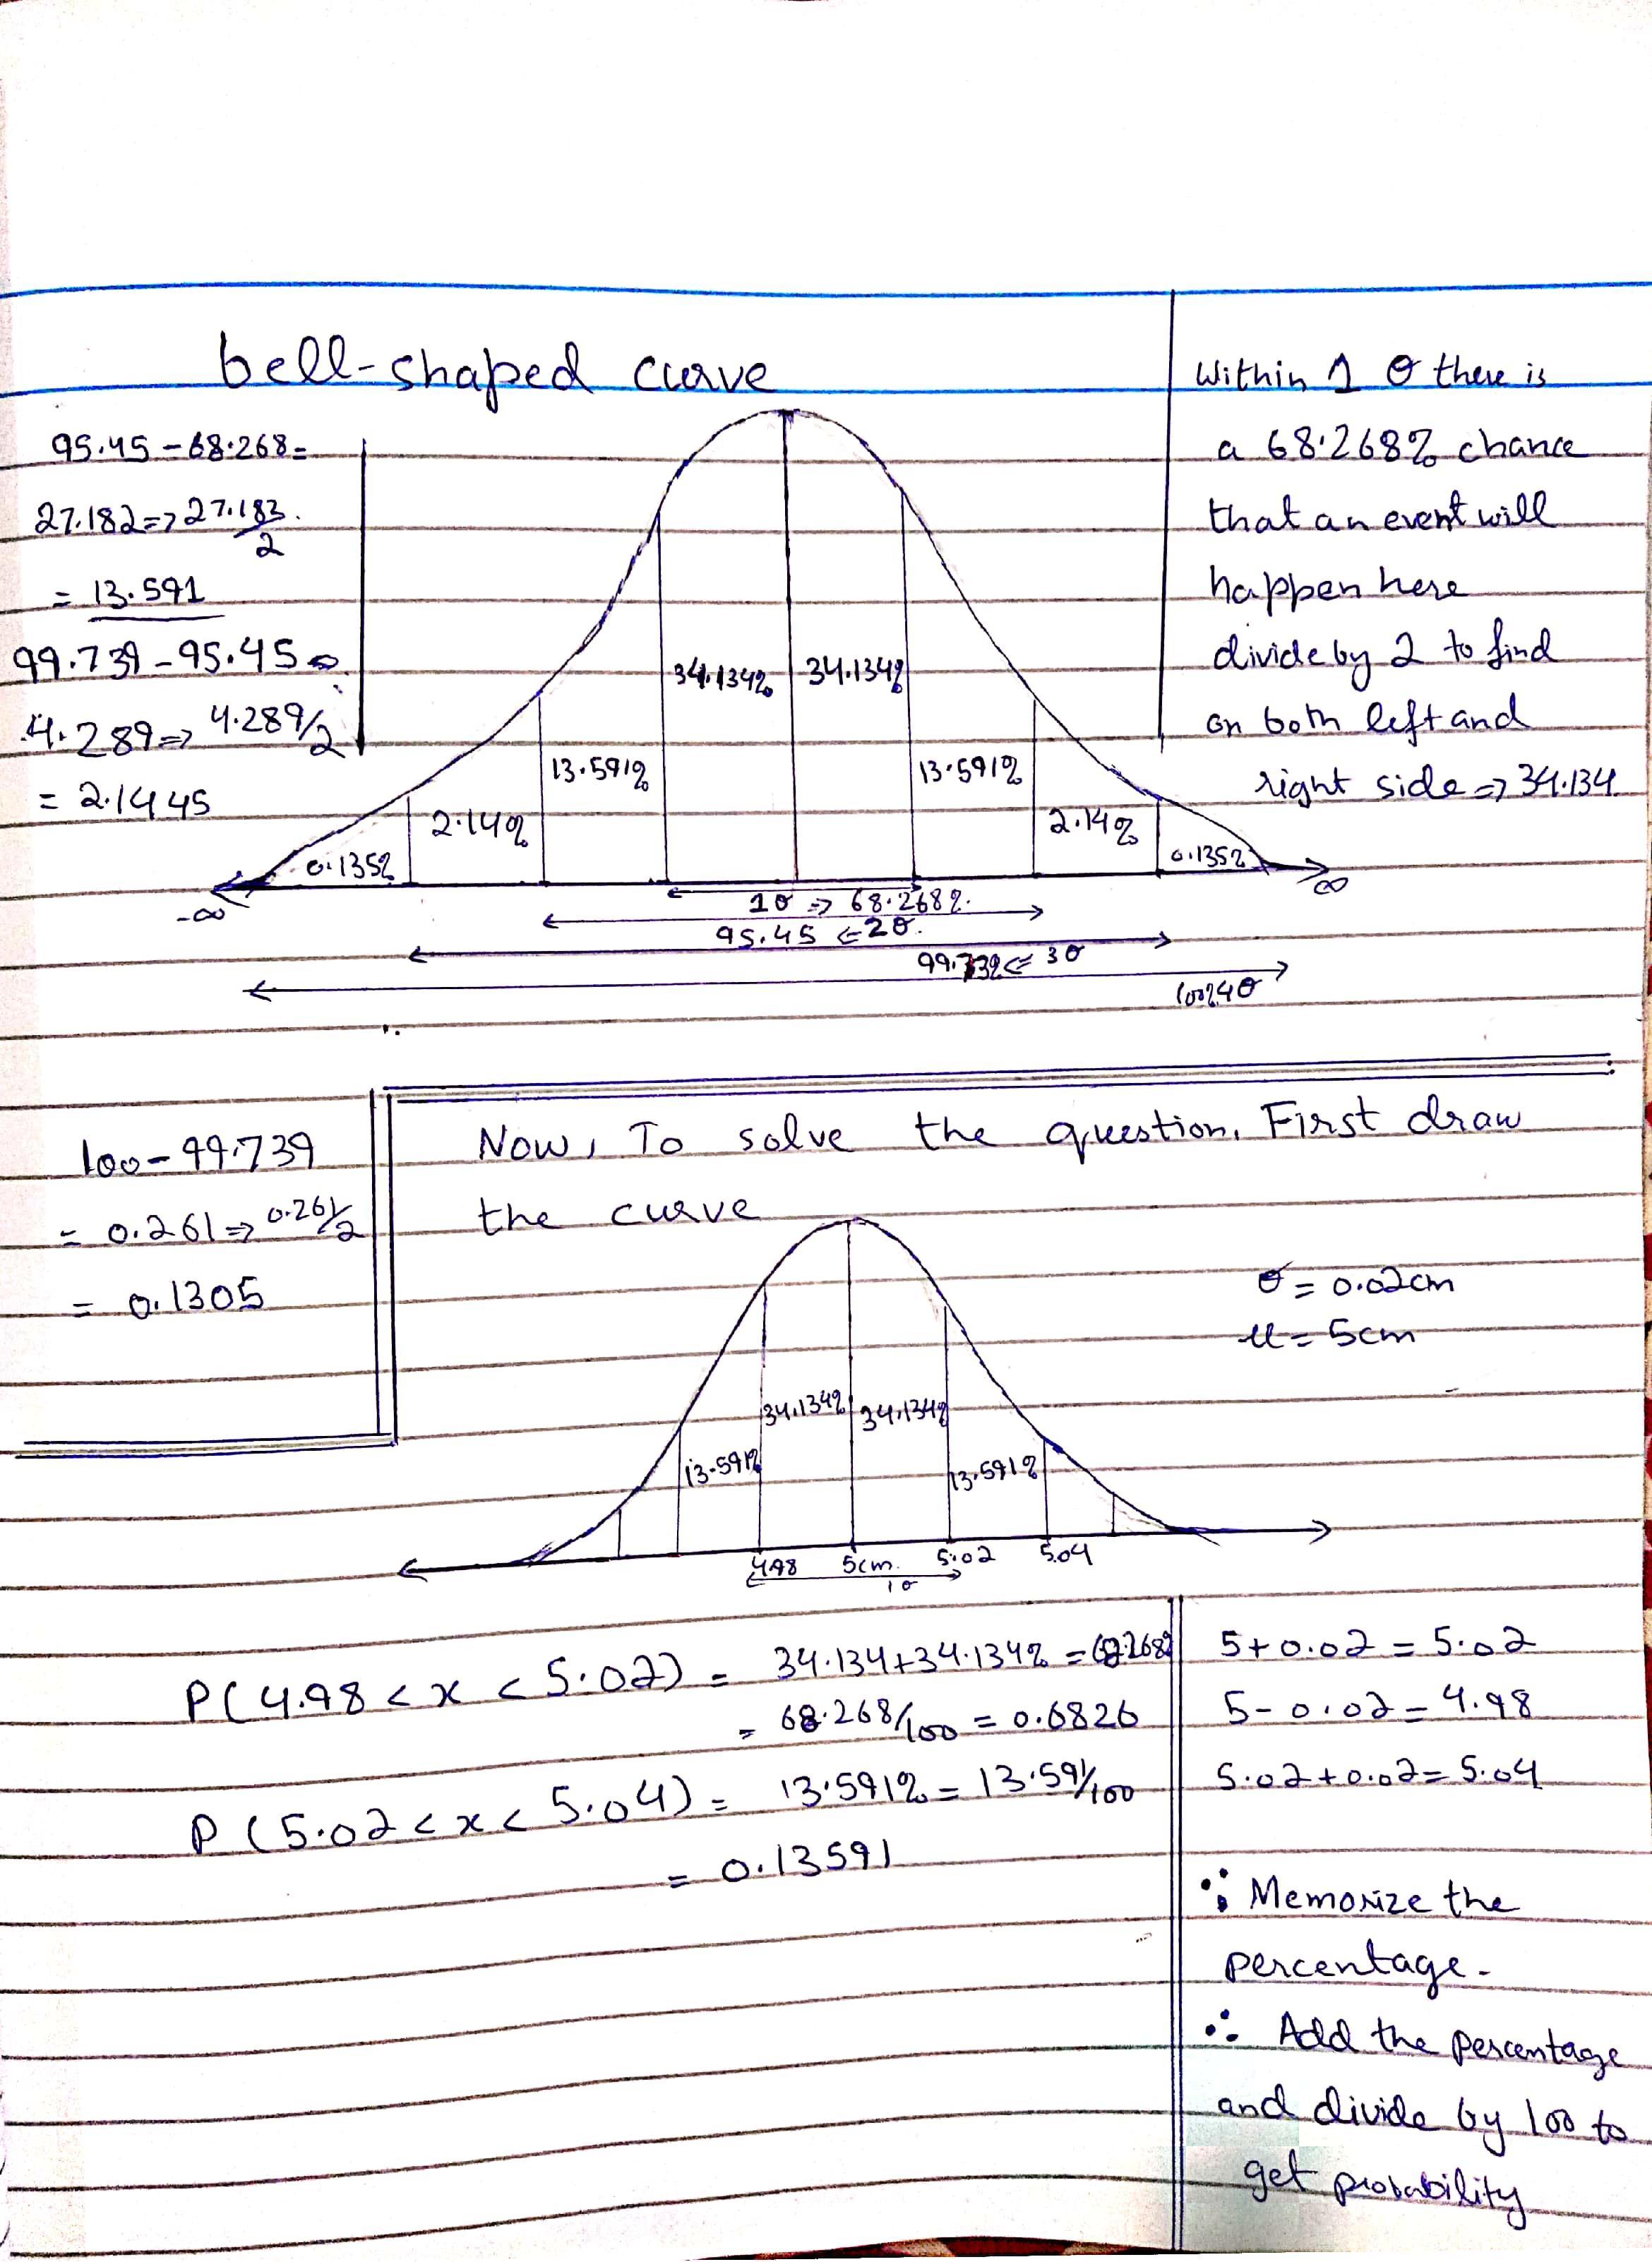 bell-shaped curve
95.45 - 68.268 =
27.182 => 27.183/2
= 13.591
99.739 - 95.45 =
4.289 => 4.289/2
= 2.1445
Within 1 σ there is
a 68.268% chance
that an event will
happen here
divide by 2 to find
on both left and
right side => 34.134
34.134% 34.134%
13.591% 13.591%
2.14% 2.14%
0.135% 0.135%
-∞ ∞
1σ => 68.268%.
95.45 <= 2σ.
99.739 <= 3σ
100% 4σ
100 - 99.739
= 0.261 => 0.261/2
= 0.1305
Now, To solve the question. First draw
the curve
σ = 0.02cm
μ = 5cm
34.134% 34.134%
13.591% 13.591%
4.98 5cm. 5.02 5.04
1σ
P(4.98 < x < 5.02) = 34.134+34.134% = 68.268%
= 68.268/100 = 0.6826
P(5.02 < x < 5.04) = 13.591% = 13.591/100
= 0.13591
5+0.02 = 5.02
5-0.02 = 4.98
5.02+0.02 = 5.04
Memorize the
percentage.
Add the percentage
and divide by 100 to
get probability